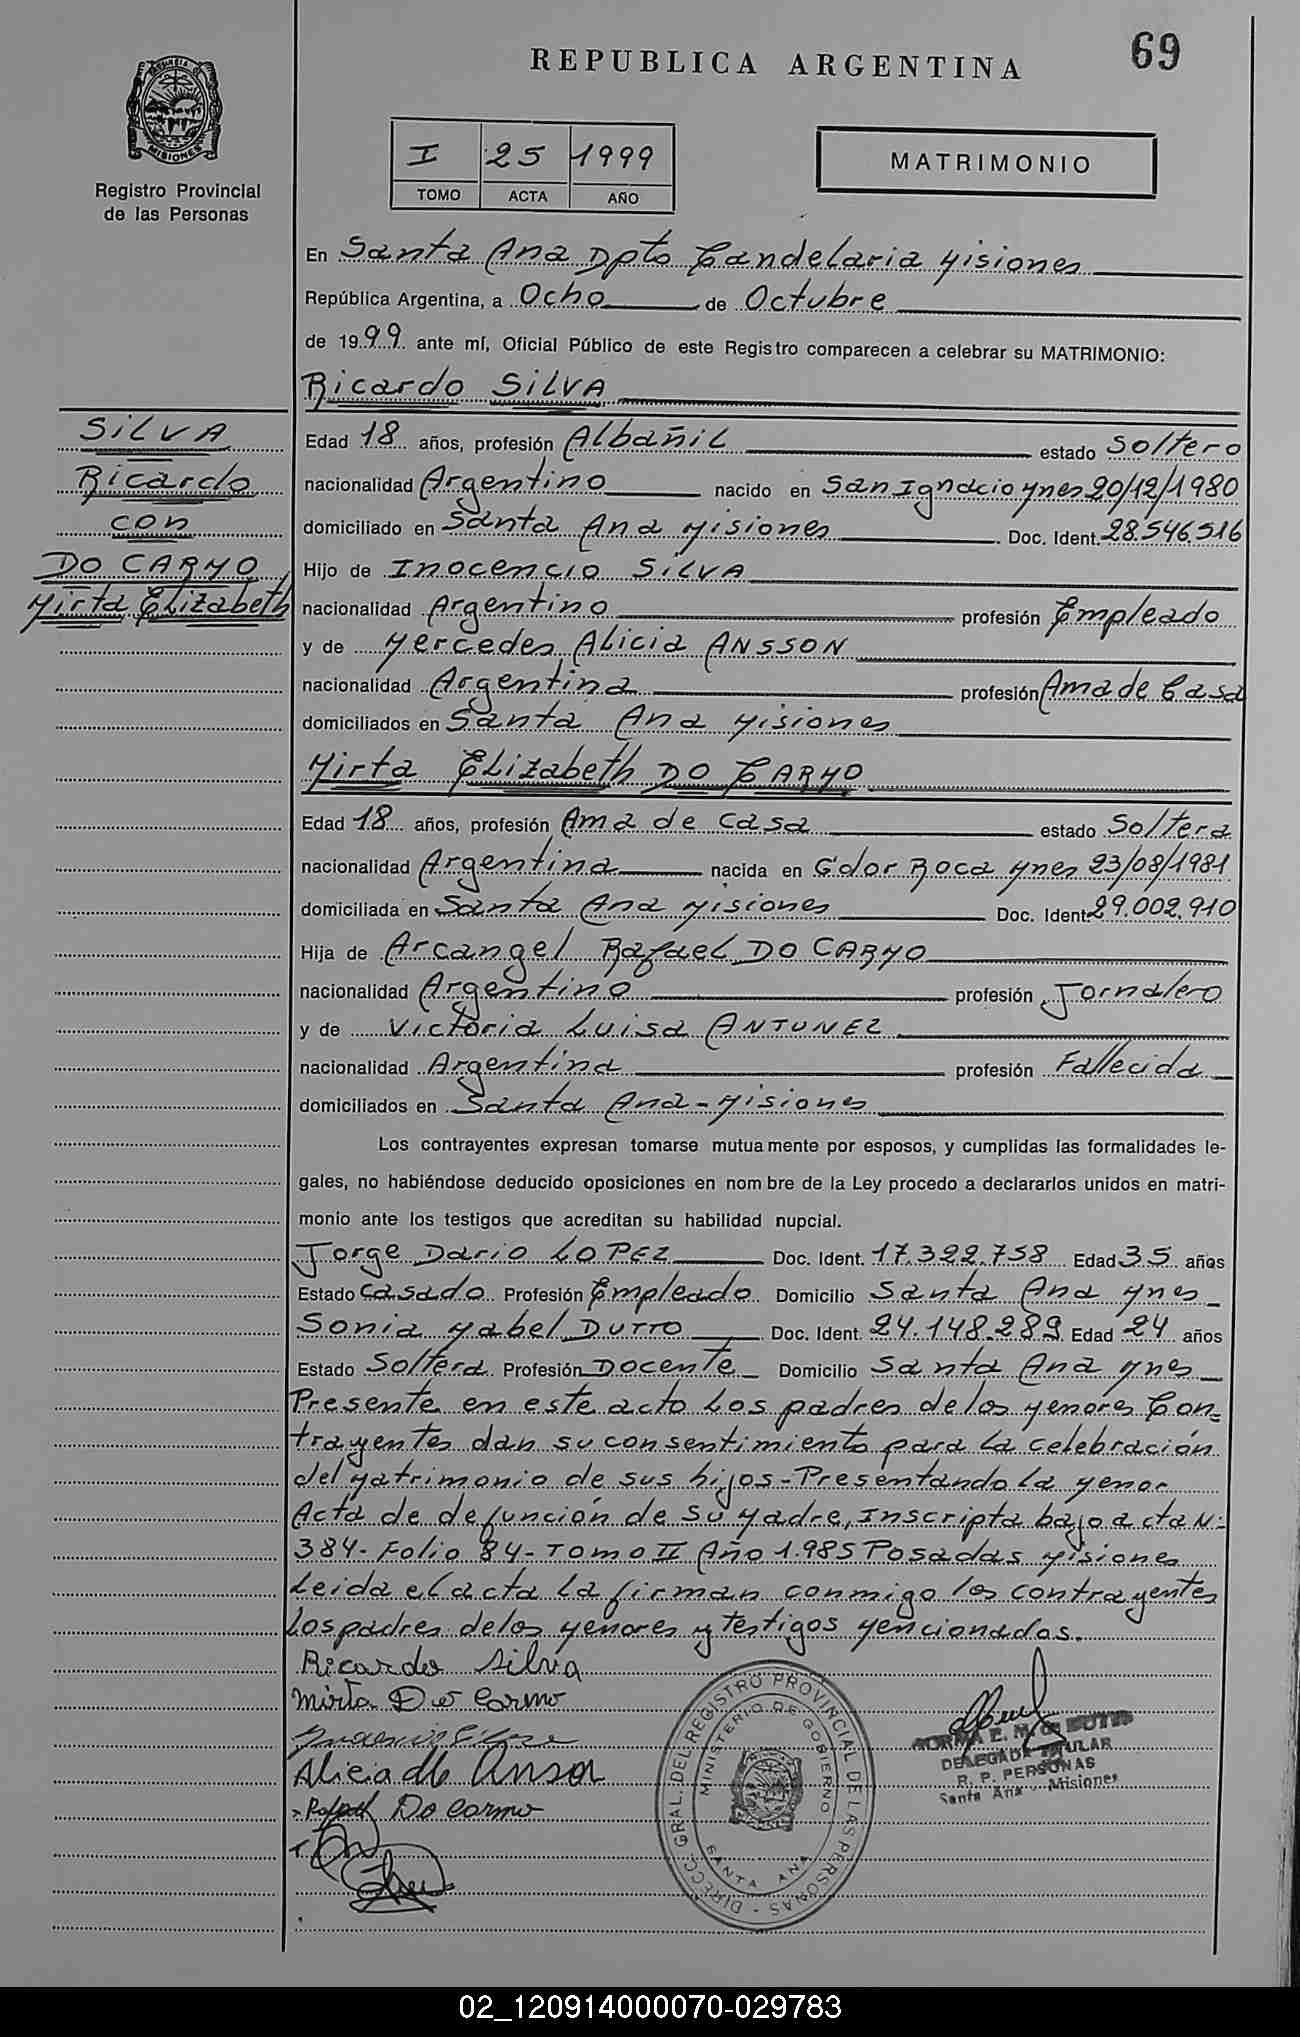 69
REPUBLICA ARGENTINA
MISIONES
Registro Provincial
de las Personas
I 25 1999
TOMO ACTA AÑO
MATRIMONIO
En Santa Ana Dpto Candelaria Misiones
República Argentina, a Ocho de Octubre
de 1999 ante mí, Oficial Público de este Registro comparecen a celebrar su MATRIMONIO:
Ricardo SILVA
SILVA
Ricardo
con
DO CARMO
Mirta Elizabeth
Edad 18 años, profesión Albañil estado Soltero
nacionalidad Argentino nacido en San Ignacio Mnes 20/12/1980
domiciliado en Santa Ana Misiones Doc. Ident. 28.546.516
Hijo de Inocencio SILVA
nacionalidad Argentino profesión Empleado
y de Mercedes Alicia ANSSON
nacionalidad Argentina profesión Ama de Casa
domiciliados en Santa Ana Misiones
Mirta Elizabeth DO CARMO
Edad 18 años, profesión Ama de Casa estado Soltera
nacionalidad Argentina nacida en Gdor Roca Mnes 23/08/1981
domiciliada en Santa Ana Misiones Doc. Ident. 29.002.910
Hija de Arcangel Rafael DO CARMO
nacionalidad Argentino profesión Jornalero
y de Victoria Luisa ANTUNEZ
nacionalidad Argentina profesión Fallecida
domiciliados en Santa Ana - Misiones
Los contrayentes expresan tomarse mutuamente por esposos, y cumplidas las formalidades le-
gales, no habiéndose deducido oposiciones en nombre de la Ley procedo a declararlos unidos en matri-
monio ante los testigos que acreditan su habilidad nupcial.
Jorge Dario LOPEZ Doc. Ident. 17.322.758 Edad 35 años
Estado Casado Profesión Empleado Domicilio Santa Ana Mnes
Sonia Mabel DUTTO Doc. Ident. 24.148.289 Edad 24 años
Estado Soltera Profesión Docente Domicilio Santa Ana Mnes
Presente en este acto los padres de los menores Con=
trayentes dan su consentimiento para la celebración
del Matrimonio de sus hijos - Presentando la menor
Acta de defunción de su Madre, Inscripta bajo acta N:
384 - Folio 84 - Tomo II Año 1.985 Posadas Misiones
Leida el acta la firman conmigo los contrayentes
Los padres de los menores y testigos mencionados.
Ricardo Silva
Mirta Do Carmo
Alicia
Rafael Do Carmo
DIRECC. GRAL. DEL REGISTRO PROVINCIAL DE LAS PERSONAS
MINISTERIO DE GOBIERNO
SANTA ANA
NORMA E. M.
DELEGADA TITULAR
R. P. PERSONAS
Santa Ana - Misiones
02_120914000070-029783